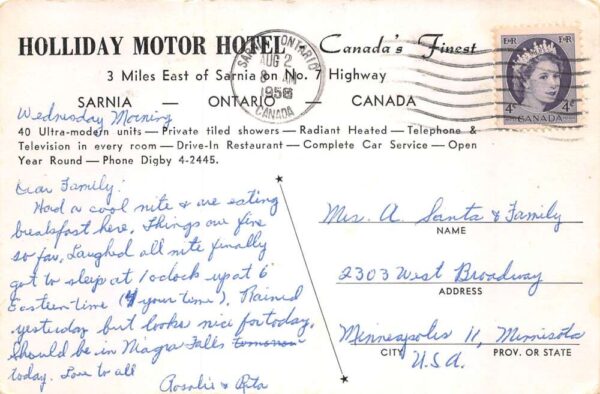 HOLLIDAY MOTOR HOTEL Canada's Finest
3 Miles East of Sarnia on No. 7 Highway
SARNIA — ONTARIO — CANADA
40 Ultra-modern units — Private tiled showers — Radiant Heated — Telephone &
Television in every room — Drive-In Restaurant — Complete Car Service — Open
Year Round — Phone Digby 4-2445.
SARNIA ONTARIO
AUG 2
8 AM
1956
CANADA
E II R E II R
4¢ 4¢
CANADA
Wednesday Morning
Dear Family:
Had a cool nite & are eating
breakfast here. Things are fine
so far. Laughed all nite finally
got to sleep at 1 oclock up at 6
Eastern time (4 your time). Rained
yesterday but looks nice for today.
Should be in Niagra Falls tomorrow
today. Love to all
Rosalie & Rita
Mrs. A. Santa & Family
NAME
2303 West Broadway
ADDRESS
Minneapolis 11, Minnisota
CITY PROV. OR STATE
U.S.A.